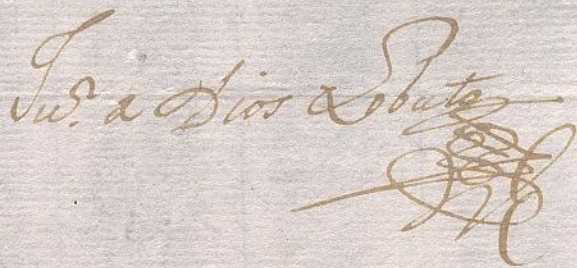 Juº. a Dios Lobato